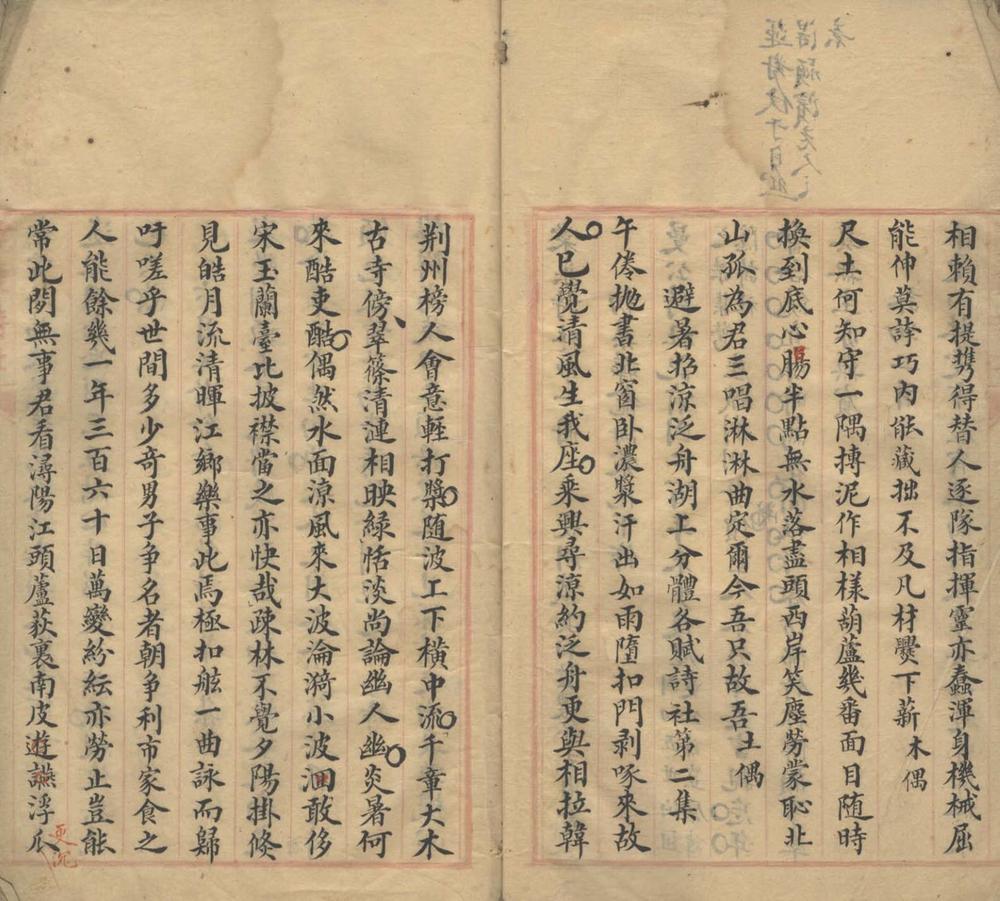 相賴有提攜得替人逐隊指揮靈亦蠢渾身機械屈
能伸莫誇巧內能藏拙不及凡材爨下薪木偶
尺土何知守一隅摶泥作相樣葫蘆幾番面目隨時
換到底心腸半點無水落盡頭西岸笑塵勞蒙恥北
山孤為君三唱淋淋曲定爾今吾只故吾土偶
避暑招涼泛舟湖上分體各賦詩社第二集
午倦拋書北窗卧濃漿汗出如雨墮扣門剥啄來故
人已覺清風生我座乘興尋涼約泛舟更與相拉韓
荆州榜人會意輕打槳隨波上下橫中流千章大木
古寺傍翠篠清漣相映綠恬淡尚論幽人幽炎暑何
來酷吏酷偶然水面涼風來大波淪漪小波洄敢侈
宋玉蘭臺比披襟當之亦快哉疎林不覺夕陽掛倐
見皓月流清暉江鄉樂事此焉極扣舷一曲詠而歸
吁嗟乎世間多少奇男子爭名者朝爭利市家食之
人能餘幾一年三百六十日萬變紛紜亦勞止豈能
常此閼無事君看潯陽江頭蘆荻裏南皮遊讌浮瓜
更沉